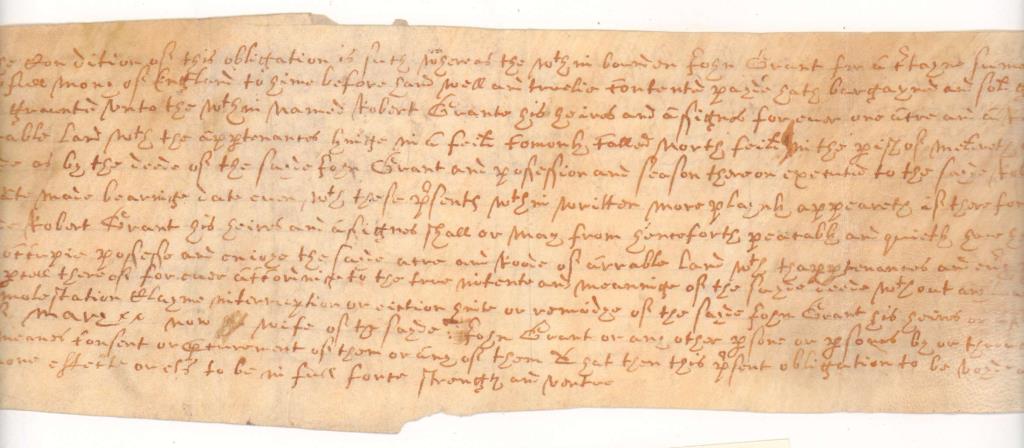 he Condition of this obligation is such Whereas the wthin bounden John Grant for a Certayne summe
full mony of England to hime before hand well and truelie contented payde hath bargayned and sold
grauntid vnto the wthin named Robert Grante his heires and assignes for euer one acre and a
rable Land wth the appertenances lyinge in a feild comonly called North feild in the pish of Melreth
as by the deede of the sayde John Grant and possession and season thereon executid to the sayde Rob
ate made bearinge date euen wth these psents wthin written more playnly appeareth if therefore
e Robert Grant his heires and assignes shall or may from henceforth peacably and quietly haue
occupie possesse and enioye the sayde acre and Roode of arrable Land wth thapptenances and eu
pcell thereof for euer accordinge to the true intente and meaninge of the sayde deede wthout an
molestation Clayme interruption or eiction suite or of the sayde John Grant his heires or
Mary now wife of the sayde John Grant or any other psone or psones by or
meanes consent or pcurement of them or any of them That then this psent obligation to be voyde
none effecte or els to be in full force strength and vertue